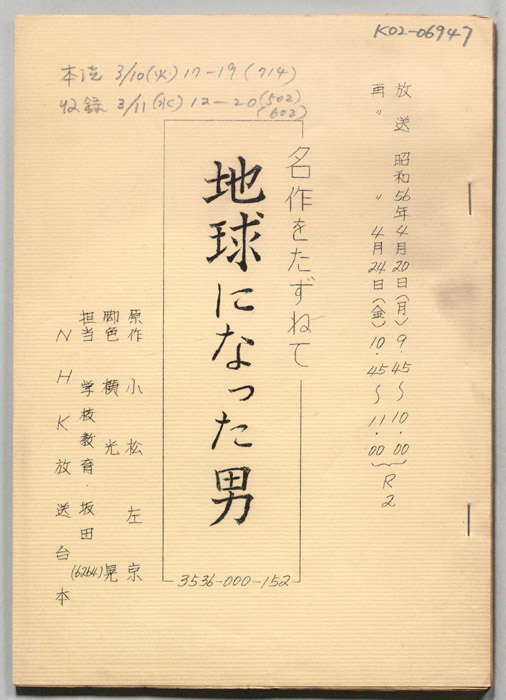 K02-06947
本読 3/10(火) 17-19 (714)
収録 3/11(水) 12-20 (502)
(602)
放送 昭和56年4月20日(月) 9.45〜10.00
再〃 〃 4月24日(金) 10.45〜11.00
R2
名作をたずねて
地球になった男
3536-000-152
原作 小松左京
脚色 横光晃
担当 学校教育・坂田(6264)
NHK放送台本